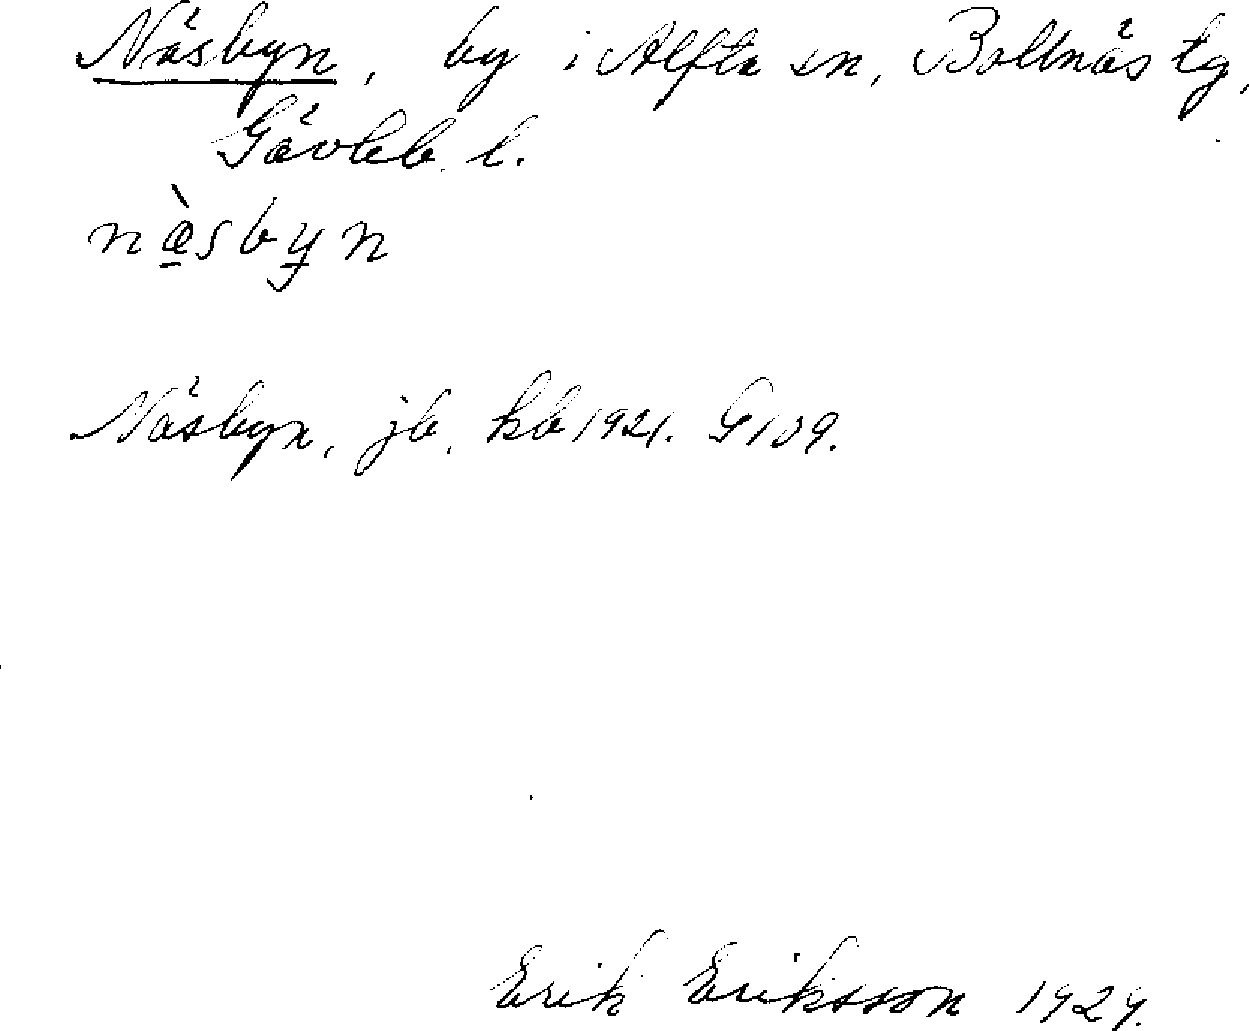 Näsbyn, by i Alfta sn, Bollnäs tg,
Gävleb. l.
næ̀sbyn
Näsbyn, jb, kb 1921. G109.
Erik Eriksson 1929.